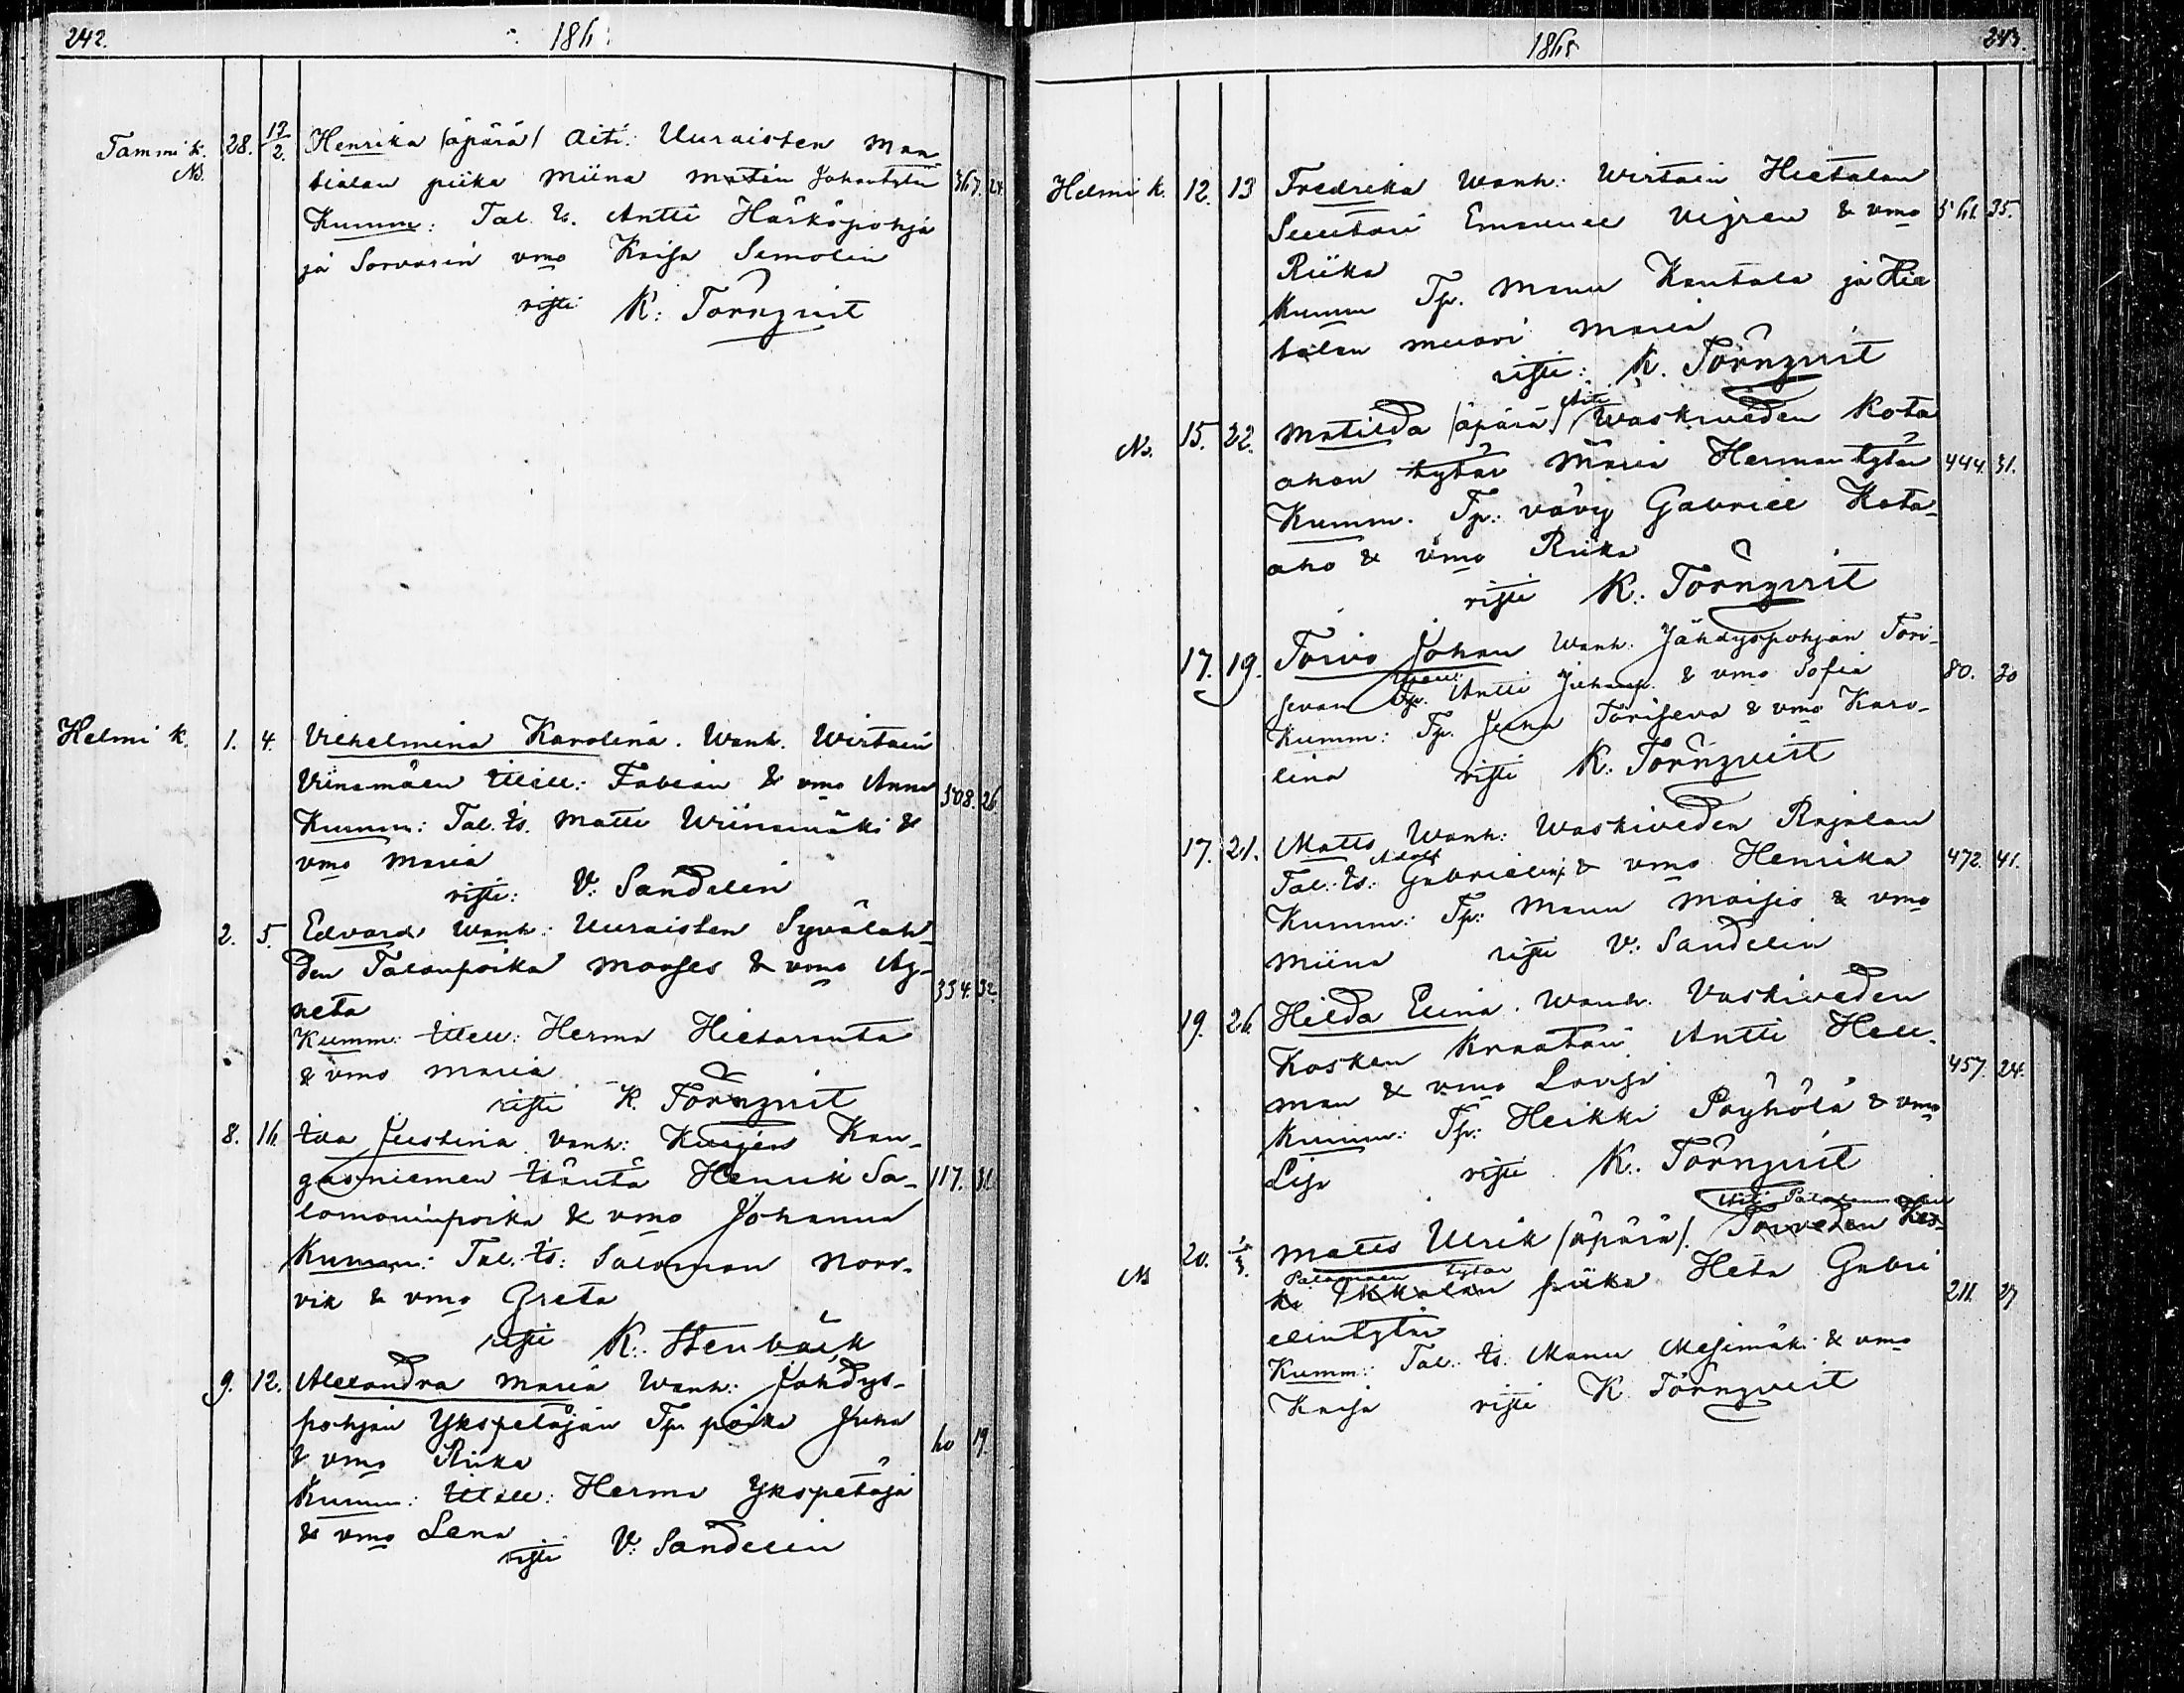 242.
186
Tammi k. 28. 17/2. Henrika /äpärä/ Äiti: Uuraisten Man-
No. tialan piika Miina Johantytär 367. 24.
Kumm: Tal. is. Antti Härköpohja
ja Sorvarin vmo Kaisa Semolin
risti K: Törnqvist
Helmi k. 1. 4. Vilhelmina Karolina. Wanh. Wirtain
Viinamäen Itsell: Fabian & vmo Anna 508. 26.
Kumm: Tal. is. Matti Wiinamäki &
vmo Maria
risti: V: Sandelin
2. 5. Edvard Wanh: Uuraisten Syvälah-
den Talonpoika Moses & vmo Ag- 334. 32.
neta
Kumm: Itsell: Herma Hietaranta
& vmo Maria
risti K. Törnqvist
8. 16. Ida Justina vanh: Kurjen Kan-
gasniemen Isäntä Henrik Sa- 117. 31.
lomoninpoika & vmo Johanna
Kumm: Tal. is: Salomon Norr-
vik & vmo Greta
risti K. Stenbäck
9. 12. Alexandra Maria Wanh: Jähdys-
pohjan Ykspetäjän Tp. poika Juha
& vmo Riika 60 19.
Kumm: Itsell: Herma Ykspetäjä
& vmo Lena
risti V: Sandelin
1865
243.
Helmi k. 12. 13 Fredrika Wanh: Wirtain Hietalan
Suutari Emanuel & vmo 561. 35.
Riika
Kumm Tp. Manu Kantala ja Hie
talan muori Maria
risti: K. Törnqvist
Äiti
No. 15. 22. Matilda /äpärä/ Waskiveden Kota
ahon tytär Maria Hermantytär 444. 31.
Kumm. Tp: vävy Gabriel Kota-
aho & vmo Riika
risti K: Törnqvist
17. 19. Toivo Johan Wanh. Jähdyspohjan Tori-
sevan Tp. Antti Juhanp. & vmo Sofia 80. 30
Kumm: Tp. Juha Toriseva & vmo Karo-
lina risti K: Törnqvist
17. 21. Matts Wanh: Waskiveden Rajalan
Adolf
Tal. is: Gabrielinp & vmo Henrika 472. 41.
Kumm: Tp: Manu Maisio & vmo
Miina risti V: Sandelin
19. 26. Hilda Elina. Wanh. Vaskiveden
Kosken Kraatari Antti Hell-
man & vmo Lovisa 457. 24.
Kumm: Tp: Heikki Pöyhölä & vmo
Lisa risti K. Törnqvist
Äiti
No 20. Matts Ulrik /äpärä/. Toisveden
tytär
piika Heta Gabri 211. 27
elintytär
Kumm: Tal. is. Manu Mesimäki & vmo
Kaisa risti K. Törnqveist